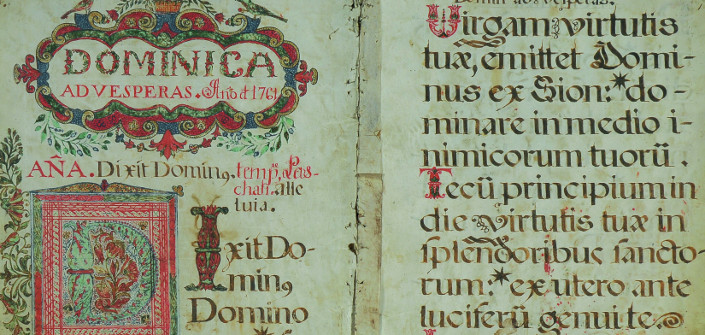 DOMINICA
AD VESPERAS. Año d 1761
AÑA. Dixit Domin9 temp,
alle
luia.
Dixit Do-
min9
Domino
Virgam virtutis
tuæ, emittet Domi-
nus ex Sion:*do-
minare in medio i-
nimicorum tuorū.
Tecū principium in
die virtutis tuæ in
splendoribus sancto-
rum:*ex utero ante
luciferū genui te.